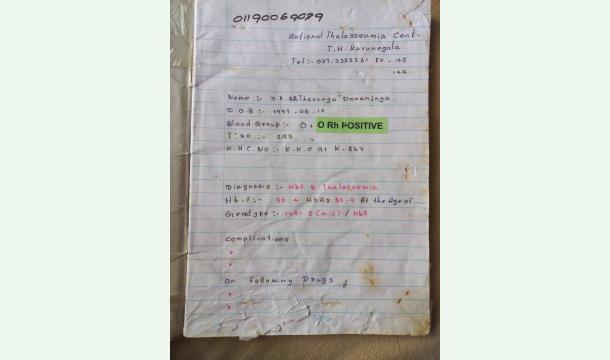 01190069089
National Thalassaemia Cent.
T.H. Karunegala
Tel :- 037-2222261 Fx - 145
144.
Name :- Tharanga Dananjaya.
D.O.B :- 1997-06-14
Blood Group :- O+ O Rh POSITIVE
T. NO. :- 293
K.H.C. NO :- K.H.C 21 K.867
Diagnosis :- HbE B Thalassemia
Hb.F :- 30.4 HbA2 52.9 At the Age of
Genotype :- / HbE
Complications
On following Drugs